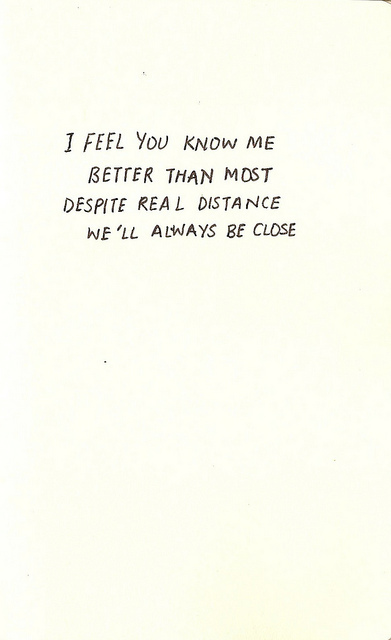 I FEEL YOU KNOW ME
BETTER THAN MOST
DESPITE REAL DISTANCE
WE'LL ALWAYS BE CLOSE